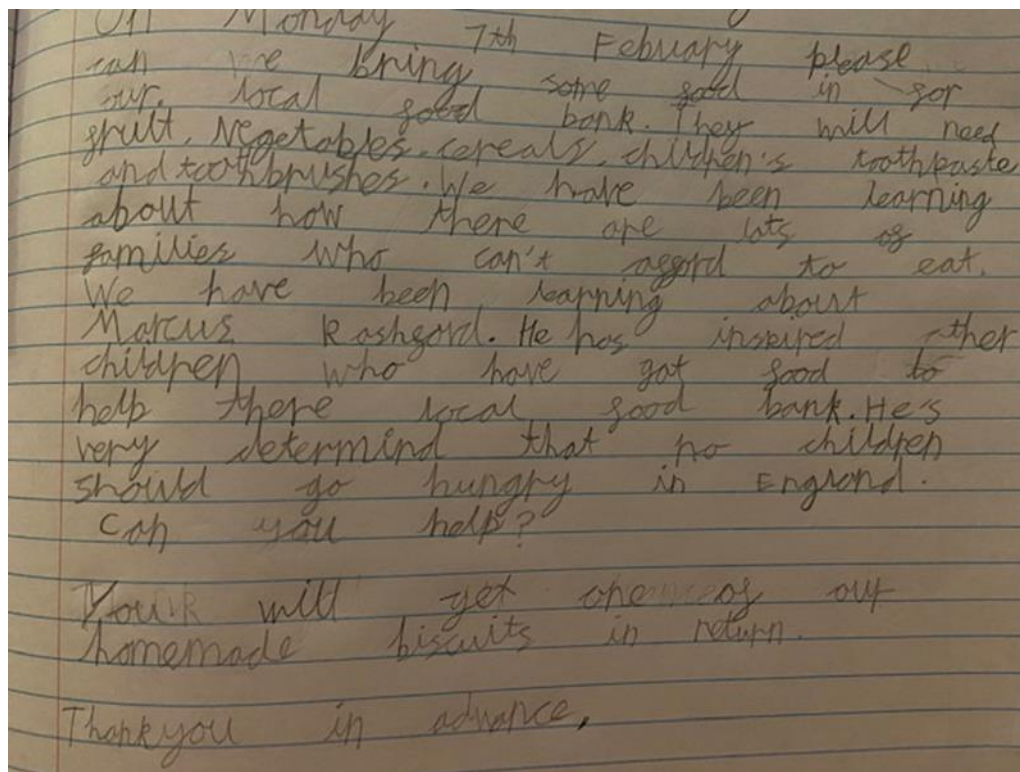 On Monday 7th Febuary please
can we bring some food in for
our local food bank. They will need
fruit, vegetables, cereals, children's toothpaste
and toothbrushes. We have been learning
about how there are lots of
families who can't afford to eat.
We have been learning about
Marcus Rashford. He has inspired other
children who have got food to
help there local food bank. He's
very determind that no children
should go hungry in England.
Can you help?
You will get one of our
homemade biscuits in return.
Thankyou in advance,